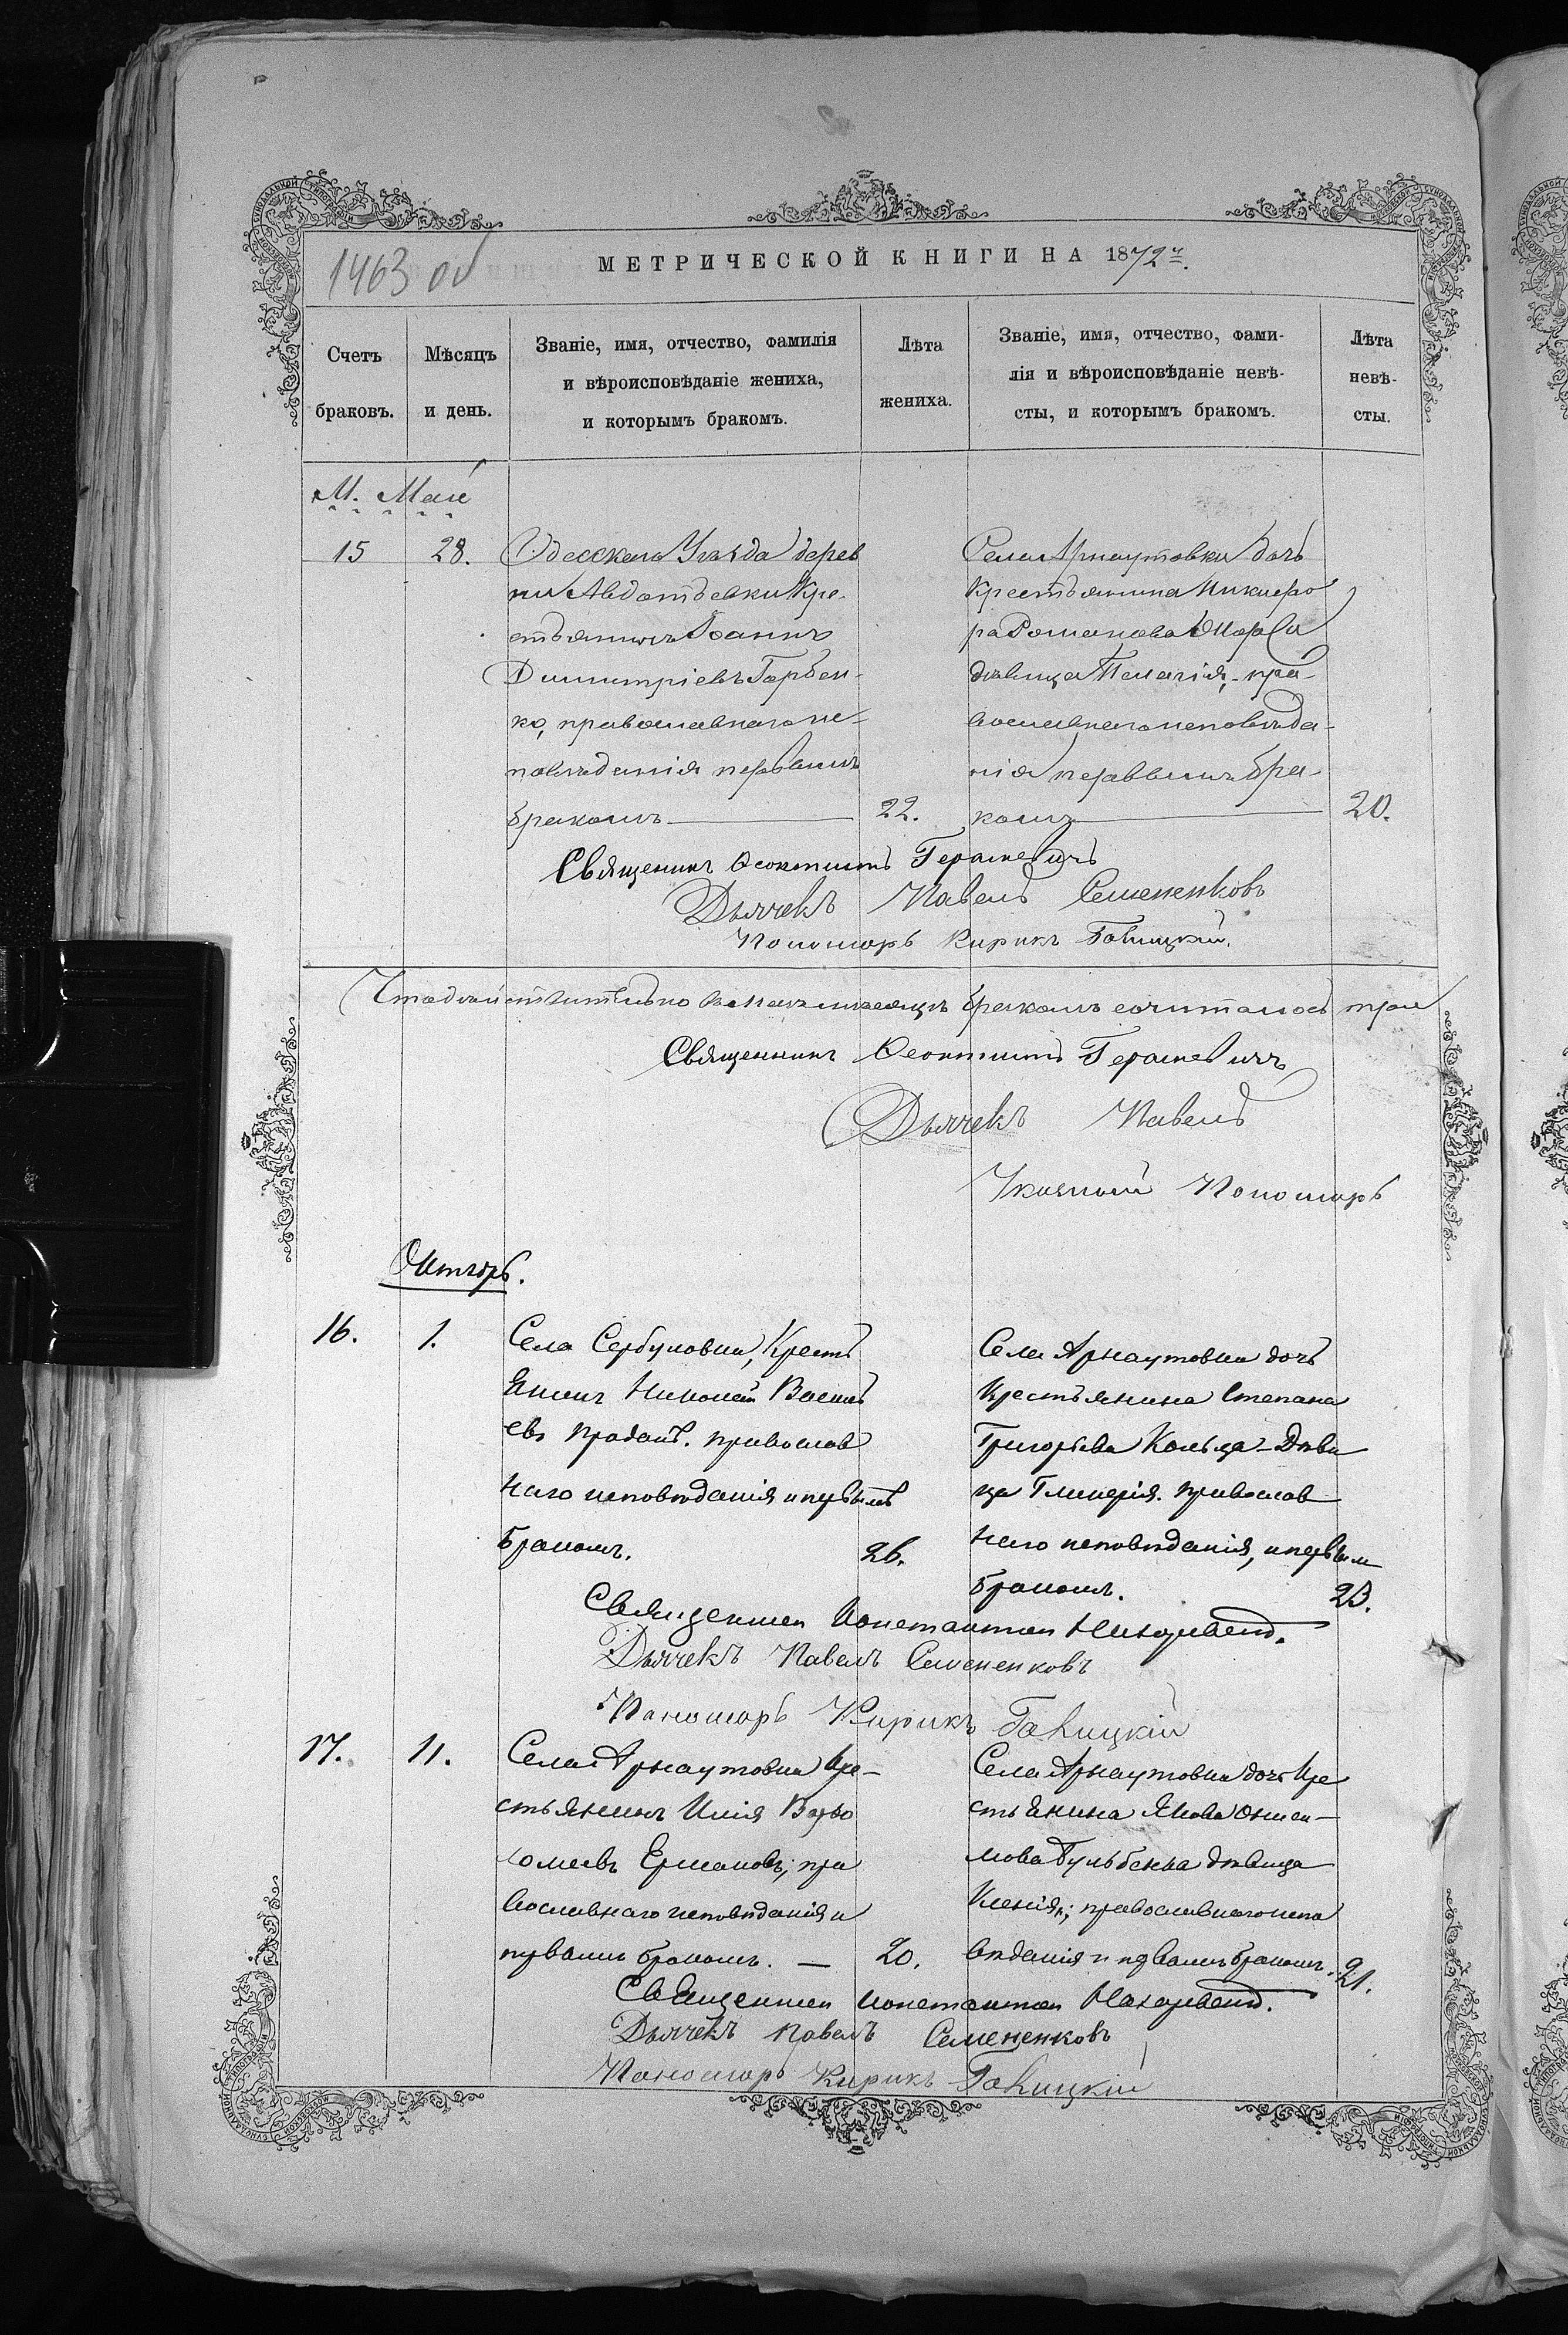 1463 об
МЕТРИЧЕСКОЙ КНИГИ НА 1872 г.
Счетъ браковъ.
Мѣсяцъ и день.
Званіе, имя, отчество, фамилія
и вѣроисповѣданіе жениха,
и которымъ бракомъ.
Лѣта
жениха.
Званіе, имя, отчество, фами-
лія и вѣроисповѣданіе невѣ-
сты, и которымъ бракомъ.
Лѣта
невѣ-
сты.
М. Маій
15
28.
Одесскаго Уѣзда дерев
ни Авдотьевки Кре-
стьянинъ Іоаннъ
Димитріевъ Горбен-
ко, православнаго ис-
повѣданія первымъ
бракомъ
22.
Села Арнаутовки дочь
Крестьянина Никифо
ра Романова
дѣвица Пелагія, пра-
вославнаго исповѣда-
нія первымъ бра-
комъ
20.
Священникъ Ѳеоктистъ Герасевичъ
Дьячекъ Павелъ Семененковъ
Пономарь КирикъГовицкій.
Что дѣйствительно въ маѣ мѣсяцѣ бракомъ сочиталось три
Священникъ Ѳеоктистъ Герасевичъ
Дьячекъ Павелъ
Указный Пономарь
Октябрь.
16.
1.
Села Сербуловки, Кресть
янинъ Николай Василь
евъ православ
наго исповѣданія и первымъ
бракомъ.
26.
Села Арнаутовки дочь
Крестьянина Степана
Григорьева Кольца - Дѣви
ца Гликерія. православ
наго исповѣданія, и первым
бракомъ.
23.
Священникъ Константин
Дьячекъ Павелъ Семененковъ
Пономарь Кирикъ Говицкій
17.
11.
Села Арнаутовки Кре-
стьянинъ Илія Варѳо
ломеевъ Ермаковъ; пра
вославнаго исповѣданія и
первымъ бракомъ. —
20.
Села Арнаутовки дочь Кре
стьянина Якова
Гульбенка дѣвица
Ксенія; православнаго испо
вѣданія и первымъ бракомъ.
21.
Священникъ Константин
Дьячекъ Павелъ Семененковъ
Пономарь Кирикъ Говицкій